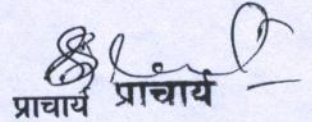 प्राचार्य प्राचार्य